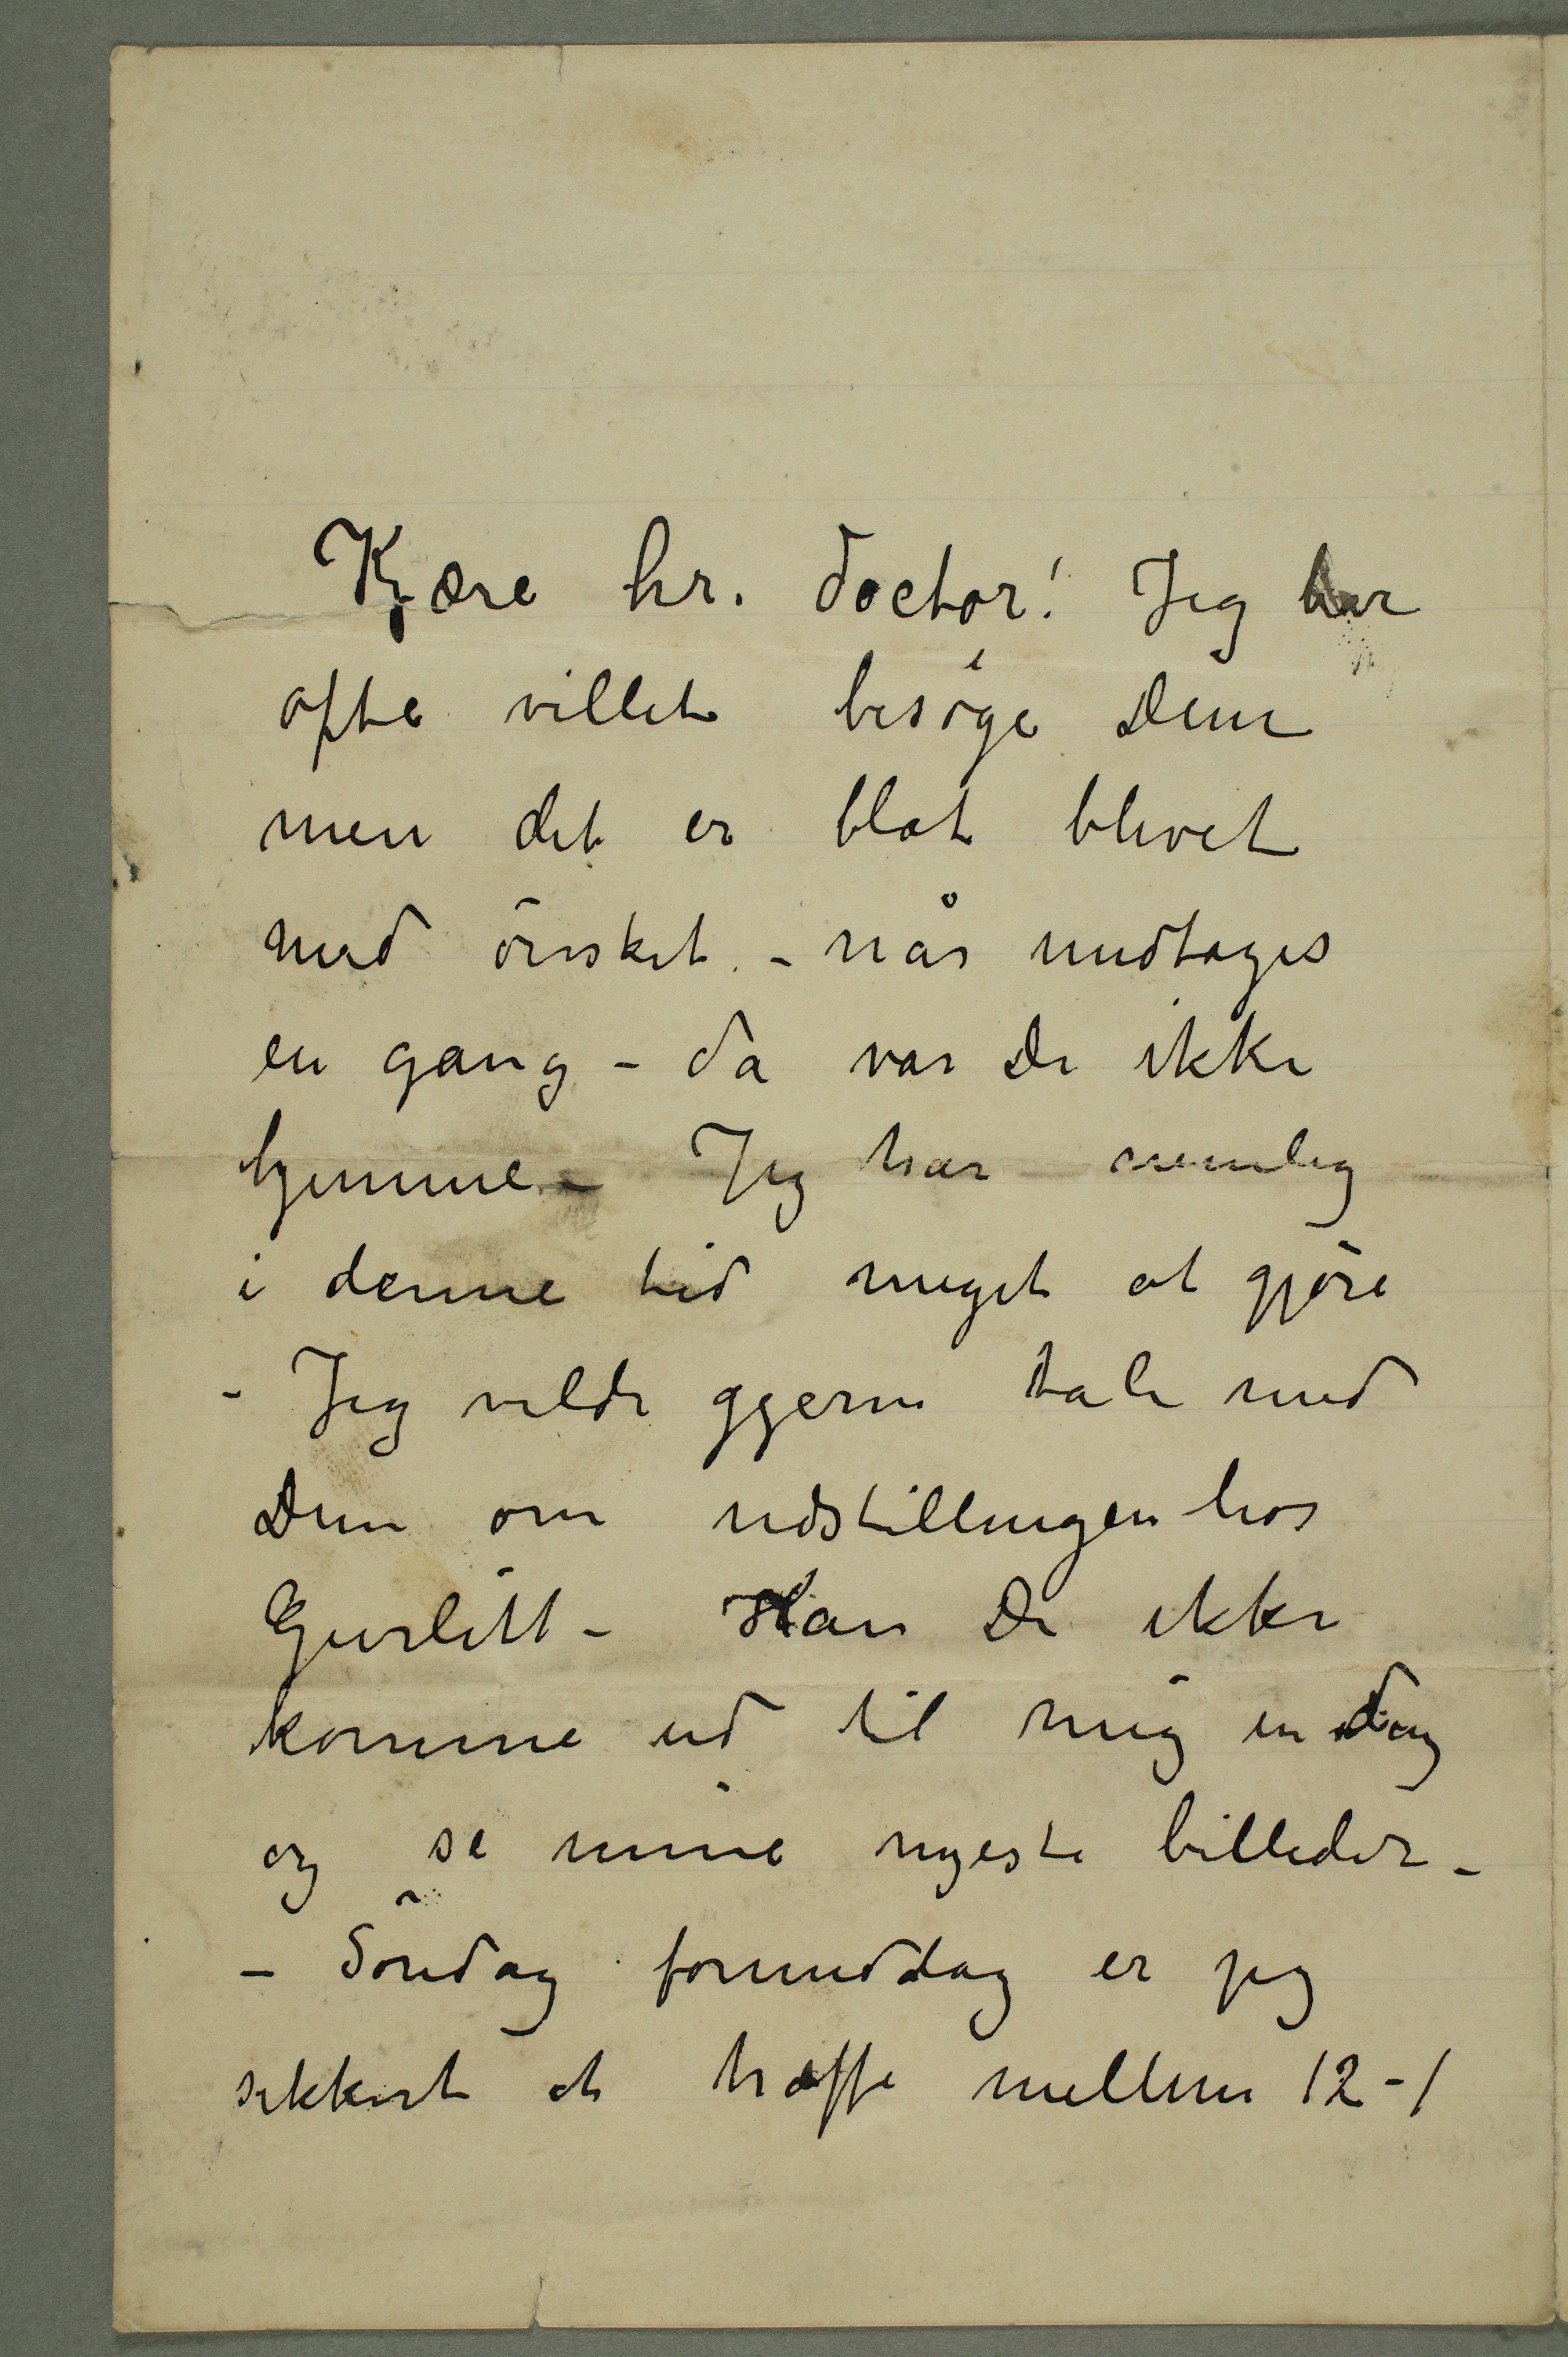 Kjære hr. doctor! Jeg har
ofte villet besöge Dem
men det er blot blevet
med önsket. – når undtages
en gang – da var De ikke
hjemme – Jeg har nemlig
i denne tid meget at gjöre
– Jeg vilde gjerne tale med
Dem om udstillingen hos
Gurlitt – Kan De ikke
komme ud til mig en dag
og se mine nyeste billeder –
– Söndag formiddag er jeg
sikkert at træffe mellem 12–1